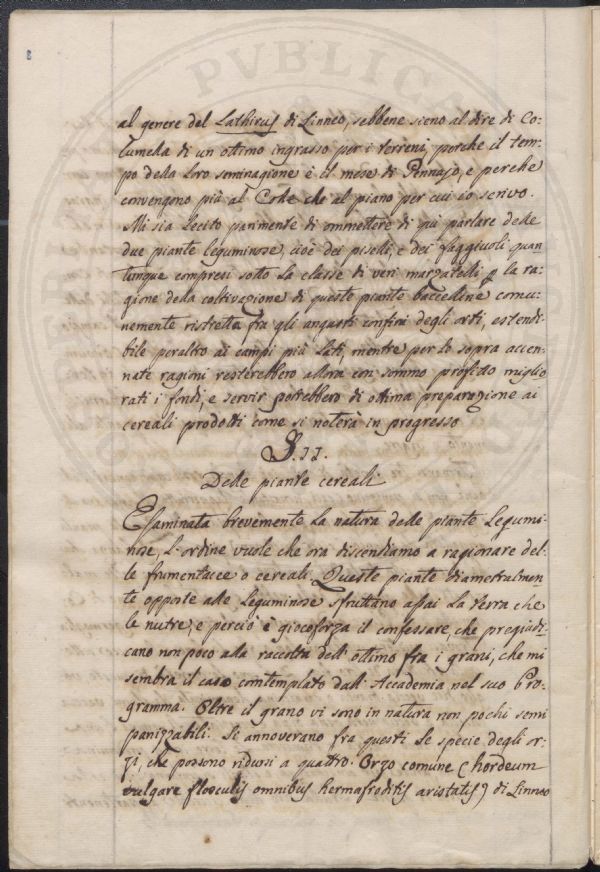 al genere del Lathirus di Linneo, sebbene sieno al dire di Co-
lumella di un ottimo ingrasso per i terreni, perche il tem-
po della loro seminagione è il mese di Gennajo, e perche
convengono più al Colle che al piano per cui io scrivo.
Mi sia lecito parimente di ommettere di qui parlare delle
due piante leguminose, cioè dei piselli, e dei faggiuoli quan-
tunque compresi sotto la classe di veri marzatelli p la ra-
gione della coltivazione di queste piante baccelline comu-
nemente ristretta fra gli angusti confini degli orti, estendi-
bile peraltro ai campi più lati, mentre per le sopra accen-
nate ragioni resterebbero allora con sommo profitto miglio
rati i fondi, e servir potrebbero di ottima preparazione ai
cereali prodotti come si noterà in progresso
§. II.
Delle piante cereali
Esaminata brevemente la natura delle piante legumi-
nose, l'ordine vuole che ora discendiamo a ragionare del-
le frumentacee o cereali. Queste piante diametralmen-
te opposte alle leguminose sfruttano assai la terra che
le nutre, e perciò è giocoforza il confessare, che pregiudi-
cano non poco alla raccolta dell'ottimo fra i grani, che mi
sembra il caso contemplato dall'Accademia nel suo Pro-
gramma. Oltre il grano vi sono in natura non pochi semi
panizzabili. Si annoverano fra questi le specie degli or-
zi, che possono ridursi a quattro. Orzo comune (hordeum
vulgare flosculis omnibus hermafroditis aristatis) di Linneo
PVBLICA